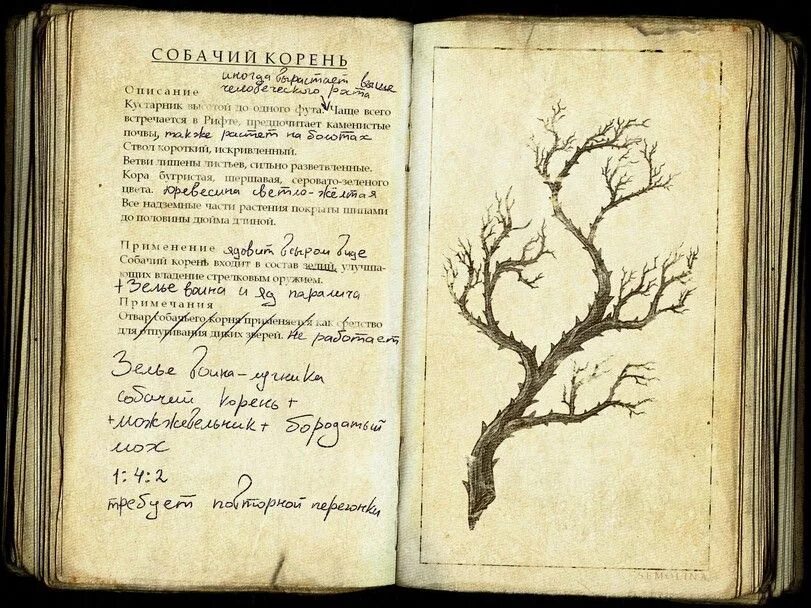 СОБАЧИЙ КОРЕНЬ
иногда вырастает выше
Описание человеческого роста
Кустарник высотой до одного фута. Чаще всего
встречается в Рифте, предпочитает каменистые
почвы, также растет на болотах
Ствол короткий, искривленный.
Ветви лишены листьев, сильно разветвленные.
Кора бугристая, шершавая, серовато-зеленого
цвета. древесина светло-жёлтая
Все надземные части растения покрыты шипами
до половины дюйма длиной.
Применение ядовит в сыром виде
Собачий корень входит в состав зелий, улучша-
ющих владение стрелковым оружием.
+ Зелье воина и яд паралича
Примечания
Отвар собачьего корня применяется как средство
для отпугивания диких зверей. не работает
Зелье воина-лучника
собачий корень +
+ можжевельник + бородатый
мох
1:4:2
требует повторной перегонки
SEMOLINA